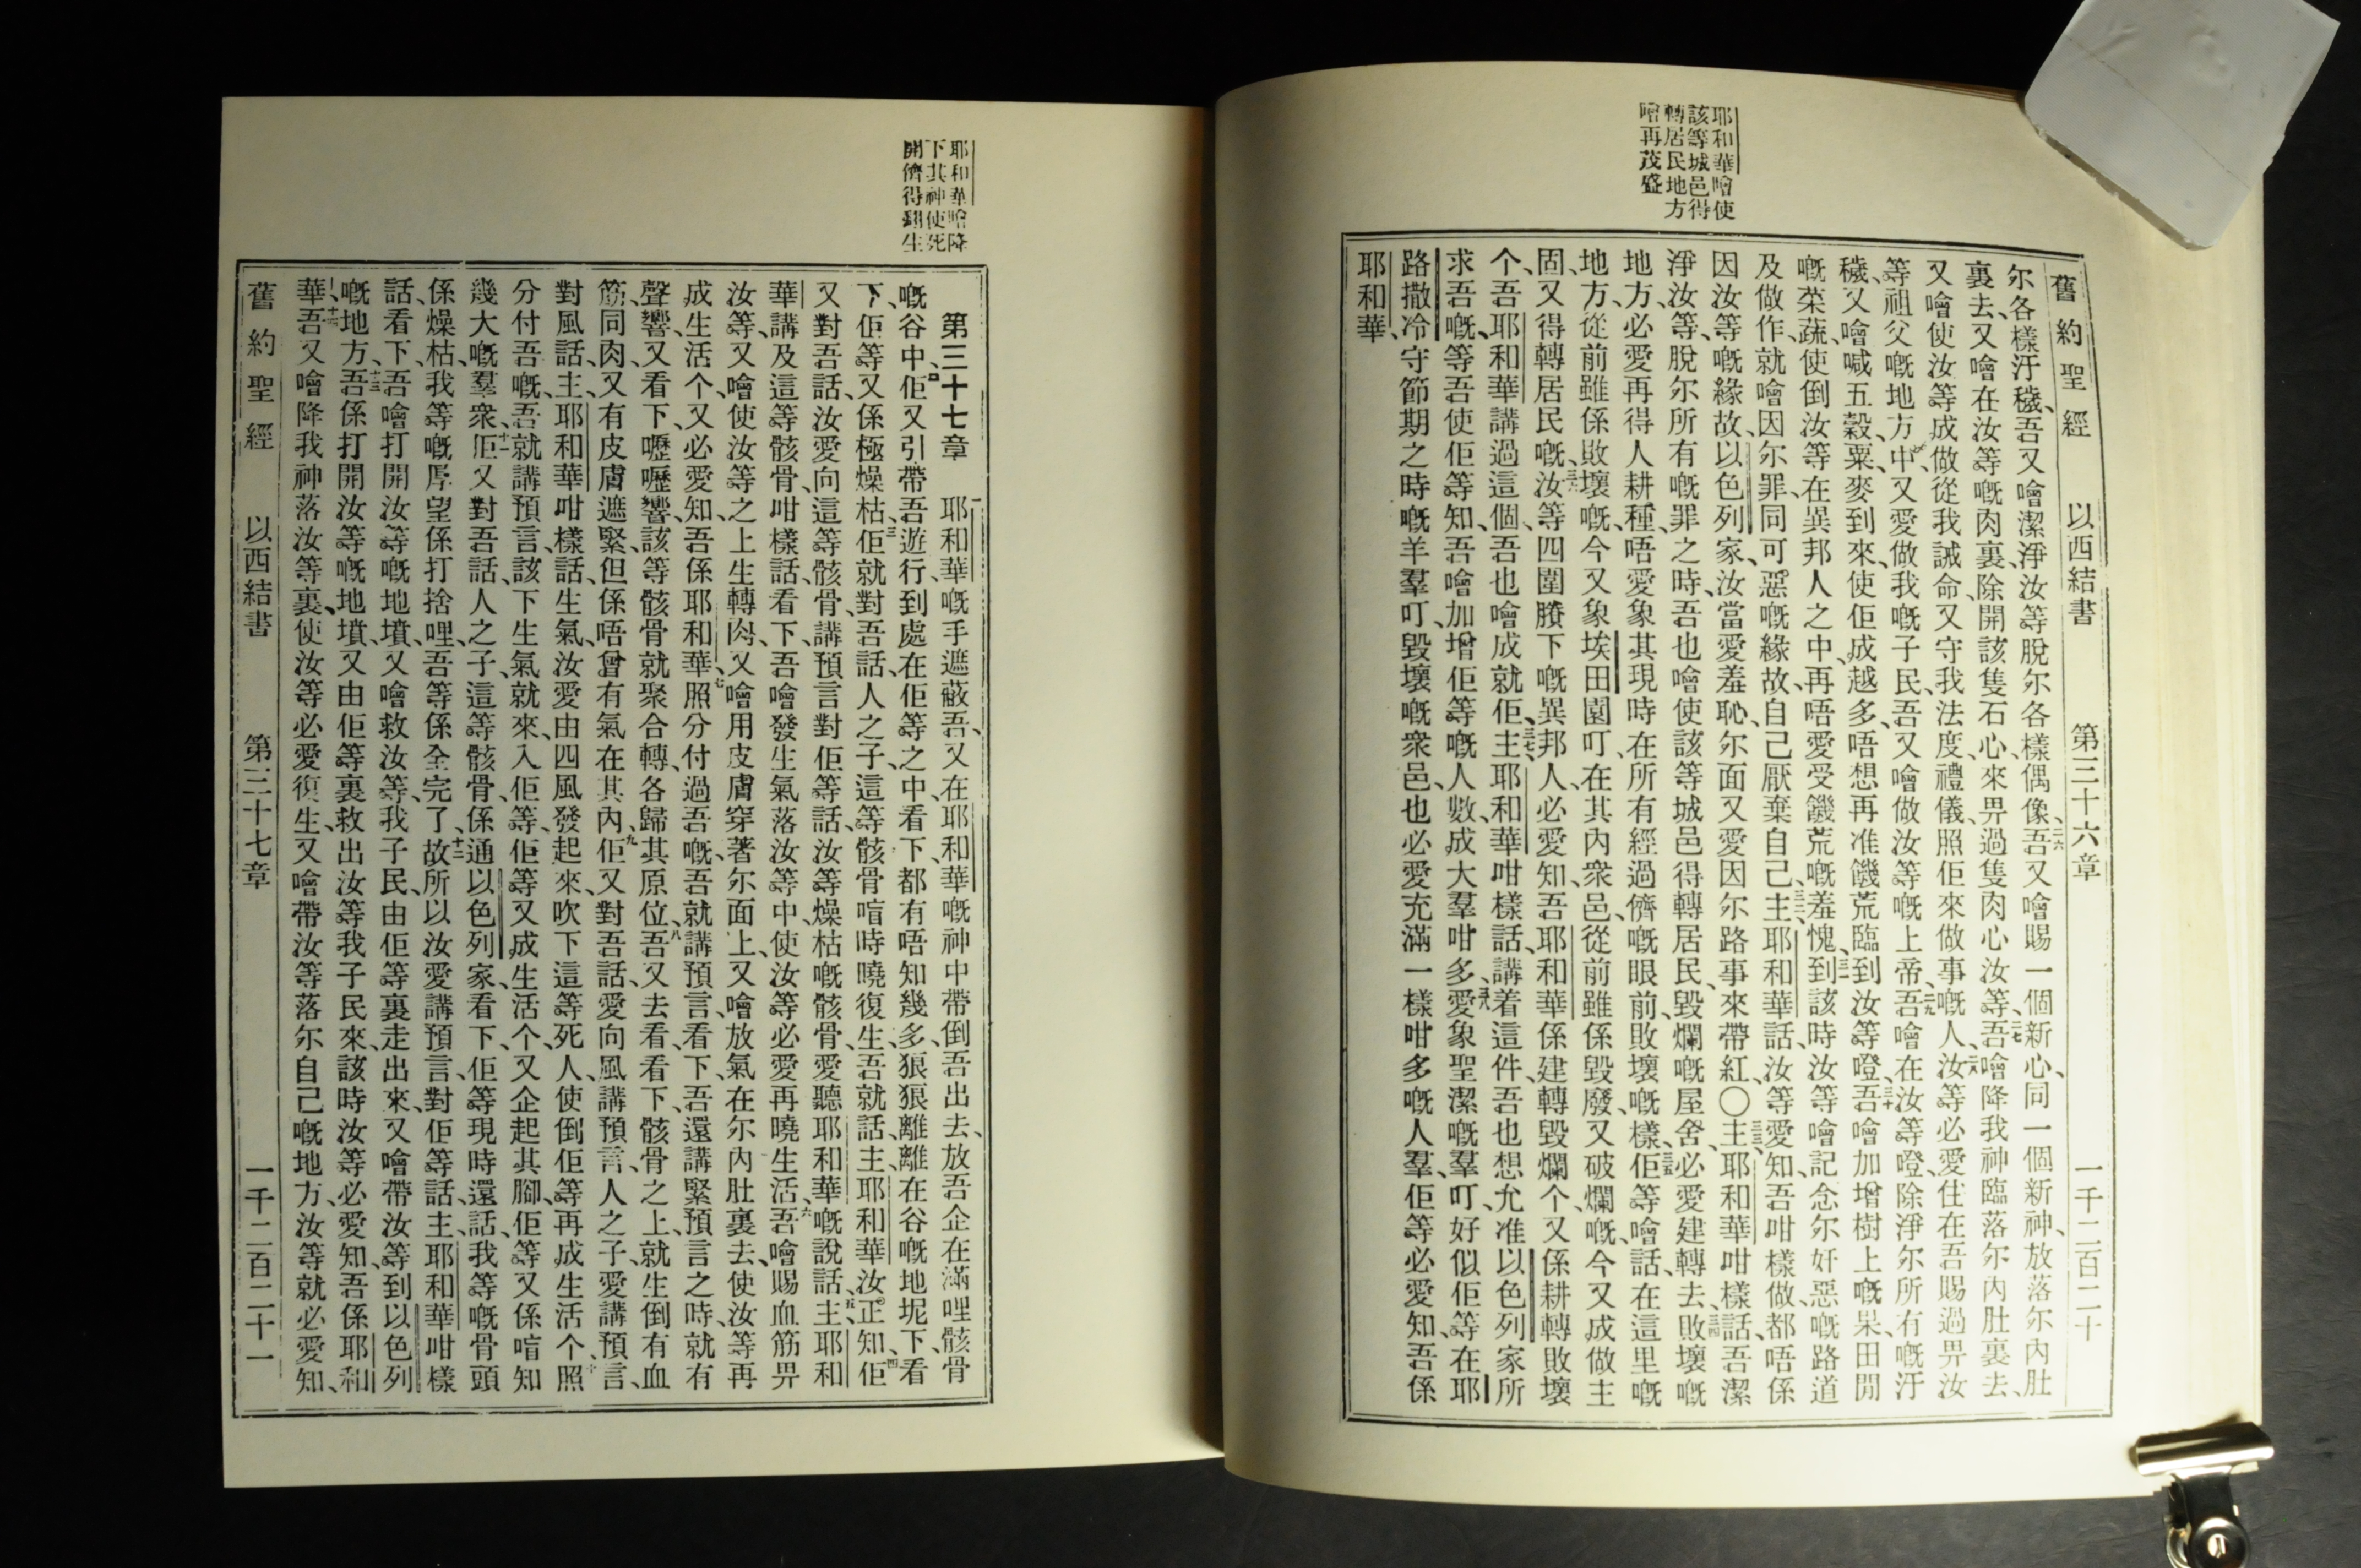 舊約聖經　以西結書　第三十六章　一千二百二十
耶和華噲使
該等城邑得
轉居民地方
噲再茂盛
尔各樣汙穢、吾又噲潔淨汝等脫尔各樣偶像、二六吾又噲賜一個新心、同一個新神、放落尔內肚
裏去、又噲在汝等嘅肉裏、除開該隻石心、來畀過隻肉心汝等、二七吾噲降我神臨落尔內肚裏去、
又噲使汝等成做從我誡命、又守我法度、禮儀、照佢來做事嘅人、二八汝等必愛住在吾賜過畀汝
等祖父嘅地方中、又愛做我嘅子民、吾又噲做汝等嘅上帝、二九吾噲在汝等噔除淨尔所有嘅汙
穢、又噲喊五穀、粟、麥到來、使佢成越多、唔想再准饑荒臨到汝等噔、三十吾噲加增樹上嘅果、田閒
嘅菜蔬、使倒汝等在異邦人之中、再唔愛受饑荒嘅羞愧、三一到該時汝等噲記念尔奸惡嘅路道
及做作、就噲因尔罪、同可惡嘅緣故、自己厭棄自己、三二主耶和華話、汝等愛知、吾咁樣做、都唔係
因汝等嘅緣故、以色列家、汝當愛羞恥、尔面又愛因尔路事來帶紅、〇三三主耶和華咁樣話、吾潔
淨汝等、脫尔所有嘅罪之時、吾也噲使該等城邑得轉居民、毀爛嘅屋舍、必愛建轉去、三四敗壞嘅
地方、必愛再得人耕種、唔愛象其現時在所有經過儕嘅眼前、敗壞嘅樣、三五佢等噲話、在這里嘅
地方、從前雖係敗壞嘅、今又象埃田園叮、在其內衆邑、從前雖係毀廢、又破爛嘅、今又成做主
固、又得轉居民嘅、三六汝等四圍賸下嘅異邦人、必愛知、吾耶和華係建轉毀爛个、又係耕轉敗壞
个、吾耶和華講過這個、吾也噲成就佢、三七主耶和華咁樣話、講着這件、吾也想允准以色列家所
求吾嘅、等吾使佢等知、吾噲加增佢等嘅人數、成大羣咁多、三八愛象聖潔嘅羣叮、好似佢等在耶
路撒冷守節期之時嘅羊羣叮、毀壞嘅衆邑、也必愛充滿一樣咁多嘅人羣、佢等必愛知、吾係
耶和華、
耶和華噲降
下其神使死
開儕得翻生
第三十七章　一耶和華嘅手遮蔽吾、又在耶和華嘅神中帶倒吾出去、放吾企在滿哩骸骨
嘅谷中、二佢又引帶吾遊行、到處在佢等之中、看下、都有唔知幾多、狼狼離離在谷嘅地坭下、看
下、佢等又係極燥枯、三佢就對吾話、人之子、這等骸骨喑時曉復生、吾就話、主耶和華、汝正知、四佢
又對吾話、汝愛向這等骸骨、講預言對佢等話、汝等燥枯嘅骸骨、愛聽耶和華嘅說話、五主耶和
華講及這等骸骨、咁樣話、看下、吾噲發生氣落汝等中、使汝等必愛再曉生活、六吾噲賜血筋畀
汝等、又噲使汝等之上生轉肉、又噲用皮膚穿著尔面上、又噲放氣在尔內肚裏去、使汝等再
成生活个、又必愛知、吾係耶和華、七照分付過吾嘅、吾就講預言、看下、吾還講緊預言之時、就有
聲響、又看下、嚦嚦響、該等骸骨就聚合轉、各歸其原位、八吾又去看看下、骸骨之上、就生倒有血
筋、同肉、又有皮膚遮緊、但係唔曾有氣在其內、九佢又對吾話、愛向風講預言、人之子、愛講預言、
對風話、主耶和華咁樣話、生氣、汝愛由四風發起來、吹下這等死人、使倒佢等再成生活个、十照
分付吾嘅、吾就講預言、該下生氣就來、入佢等、佢等又成生活个、又企起其腳、佢等又係喑知
幾大嘅羣衆、十一佢又對吾話、人之子、這等骸骨、係通以色列家、看下、佢等現時還話、我等嘅骨頭
係燥枯、我等嘅㞐望係打捨哩、吾等係全完了、十二故所以汝愛講預言、對佢等話、主耶和華咁樣
話、看下、吾噲打開汝等嘅地墳、又噲救汝等、我子民、由佢等裏走出來、又噲帶汝等到以色列
嘅地方、十三吾係打開汝等嘅地墳、又由佢等裏救出汝等我子民來、該時汝等必愛知、吾係耶和
華、十四吾又噲降我神落汝等裏、使汝等必愛復生、又噲帶汝等落尔自己嘅地方、汝等就必愛知、
舊約聖經　以西結書　第三十七章　一千二百二十一